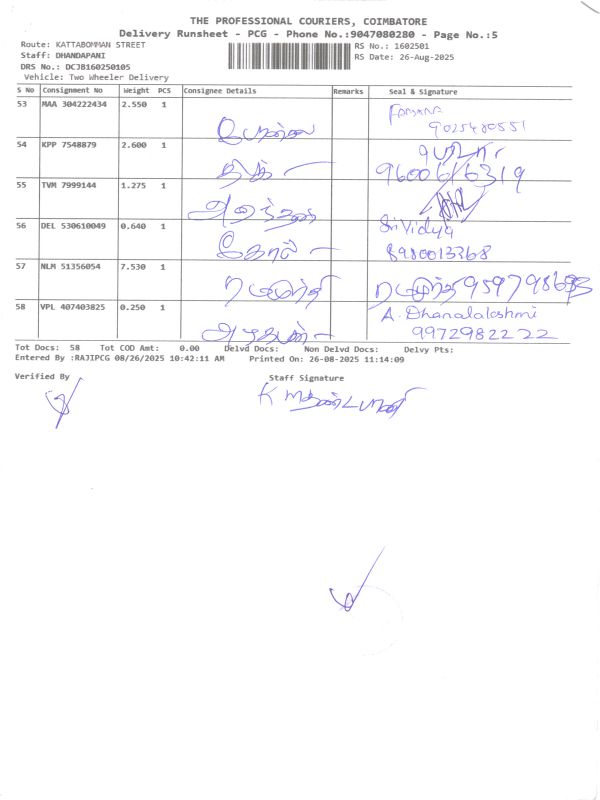 THE PROFESSIONAL COURIERS, COIMBATORE
Delivery Runsheet - PCG - Phone No.:9047080280 - Page No.:5
Route: KATTABOMMAN STREET RS No.: 1602501
Staff: DHANDAPANI RS Date: 26-Aug-2025
DRS No.: DCJB160250105
Vehicle: Two Wheeler Delivery
S No Consignment No Weight PCS Consignee Details Remarks Seal & Signature
53 MAA 304222434 2.550 1
9025480551
54 KPP 7548879 2.600 1
9600616319
55 TVM 7999144 1.275 1
56 DEL 530610049 0.640 1 Sri Vidya
8980013368
57 NLM 51356054 7.530 1
58 VPL 407403825 0.250 1 A. Dhanalakshmi
9972982222
Tot Docs: 58 Tot COD Amt: 0.00 Delvd Docs: Non Delvd Docs: Delvy Pts:
Entered By :RAJIPCG 08/26/2025 10:42:11 AM Printed On: 26-08-2025 11:14:09
Verified By Staff Signature